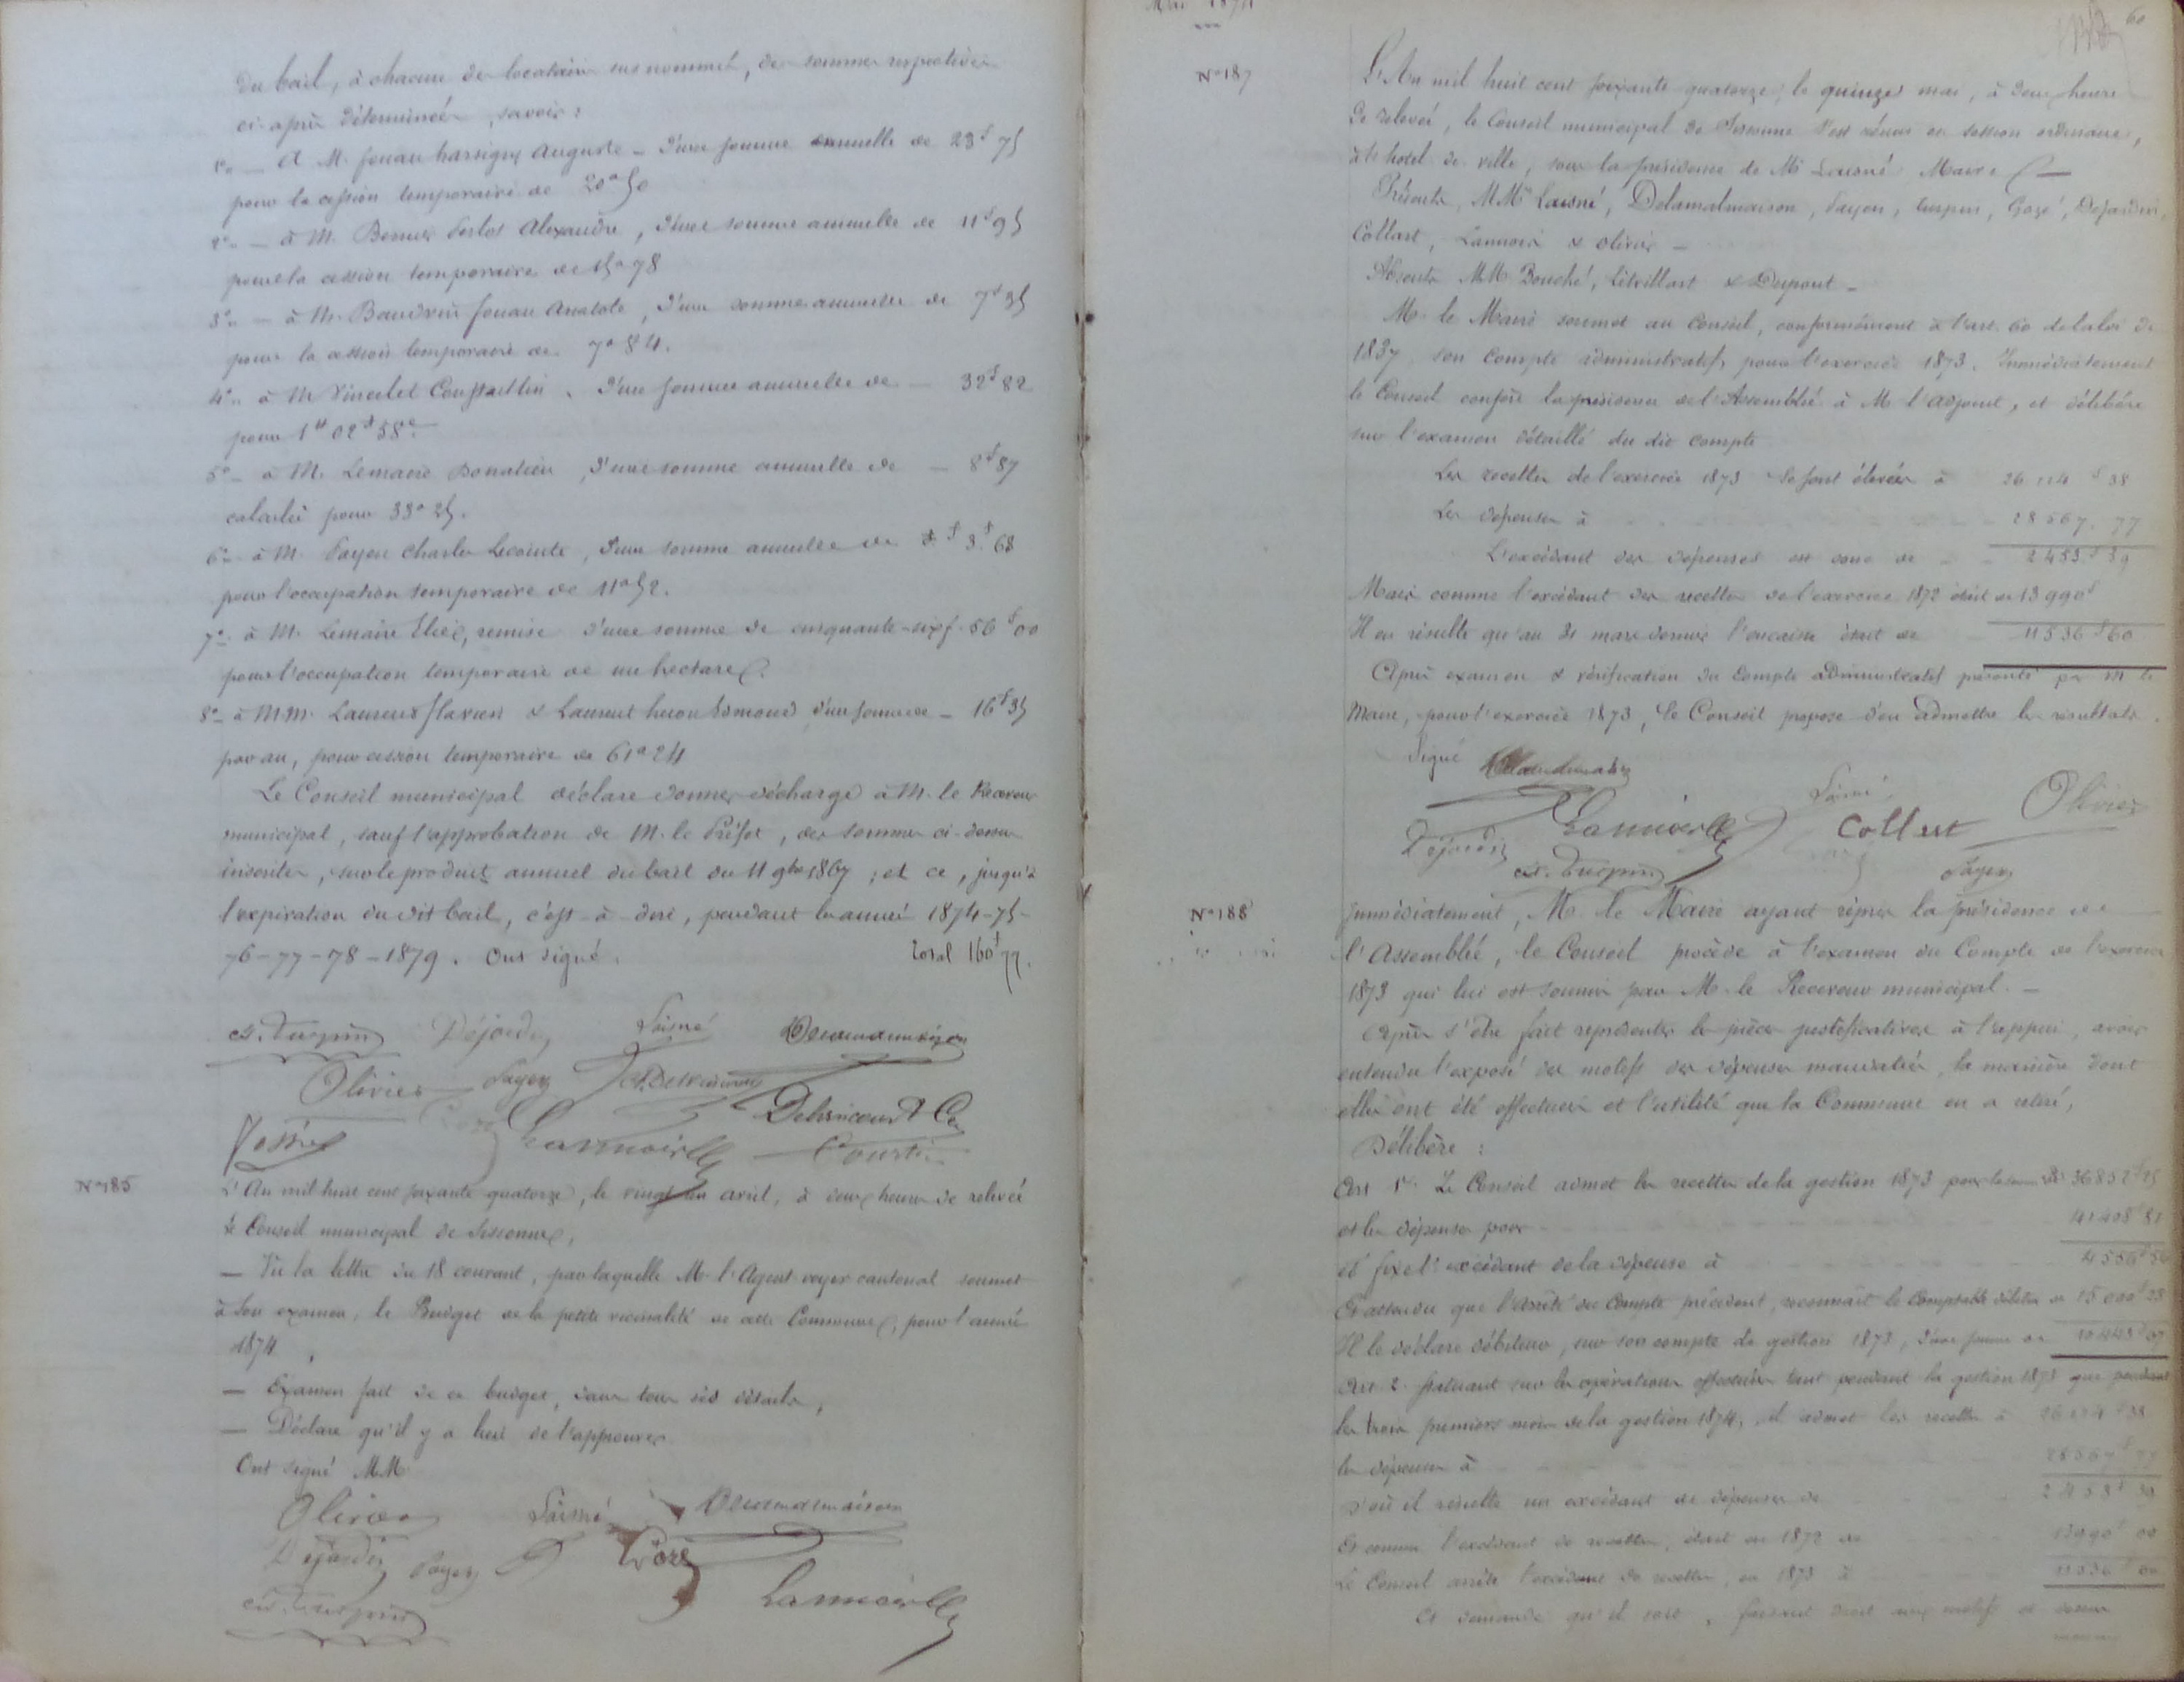 du bail, à chacun des locataires sus nommés, des sommes respectives
ci-après déterminées, savoir :
1o — A M. Jouan harsigny Auguste — d'une somme annuelle de 23f 75
pour la cession temporaire de 20a 50
2o — à M. Alexandre, d'une somme annuelle de 11f 95
pour la cession temporaire de 15a 78
3o — à M. Baudvin Jouan Anatole, d'une somme annuelle de 7f 35
pour la cession temporaire de 7a 84.
4o à M. d'une somme annuelle de — 32f 82
pour 1h 02a 58c
5o — à M. Lemaire Donatien, d'une somme annuelle de — 8f 87
calculée pour 33a 25.
6o à M. Payen Charles Lecointe, d'une somme annuelle de 3f 68
pour l'occupation temporaire de 11a 52.
7o à M. Lemaire remise d'une somme de cinquante-six f. 56f 00
pour l'occupation temporaire de un hectare.
8o à MM. Laurent Flavien & Laurent d'une somme de — 16f 35
par an, pour cession temporaire de 61a 24
Le Conseil municipal déclare donner décharge à M. le Receveur
municipal, sauf l'approbation de M. le Préfet, des sommes ci-dessus
inscrites, sur le produit annuel du bail du 11 9bre 1867 ; et ce, jusqu'à
l'expiration du dit bail, c'est-à-dire, pendant les années 1874-75-
76-77-78-1879. Ont signé. Total 160f 77.
Ct. Turpin Déjardin Laisné Delamalmaison
Olivier Payen
Lannois
No 185
L'An mil huit cent soixante quatorze, le vingt un avril, à deux heures de relevée
le Conseil municipal de Sissonne,
— Vu la lettre du 18 courant, par laquelle M. l'Agent voyer cantonal soumet
à son examen, le Budget de la petite vicinalité de cette Commune, pour l'année
1874,
— Examen fait de ce budget, dans tous ses détails,
— Déclare qu'il y a lieu de l'approuver
Ont signé MM
Olivier Laisné Delamalmaison
Dejardin Payen Gozé
Ct. Turpin Lannois
Mai 1874
60
No 187
L'An mil huit cent soixante quatorze, le quinze mai, à deux heures
de relevée, le Conseil municipal de Sissonne s'est réuni en session ordinaire,
à l'hotel de ville, sous la présidence de M. Laisné Maire
Présents, MM Laisné, Delamalmaison, Payen, Turpin, Gozé, Dejardin,
Collart, Lannois & Olivier —
Absents MM Bouché, Létrillart & Dupont —
M. le Maire soumet au Conseil, conformément à l'art. 60 de la loi de
1837 son compte administratif pour l'exercice 1873. Immédiatement
le Conseil confère la présidence de l'Assemblée à M l'adjoint, et délibère
sur l'examen détaillé du dit compte
Les recettes de l'exercice 1873 se sont élevées à 26 114f 38
Les dépenses à 28 567. 77
L'excédant des dépenses est donc de 2453f 39
Mais comme l'excédant des recettes de l'exercice 1872 était de 13 990f
Il en résulte qu'au 31 mars dernier l'encaisse était de 11 536f 60
Après examen & vérification du Compte administratif présenté par M le
Maire, pour l'exercice 1873, le Conseil propose d'en admettre les résultats.
Signé Delamalmaison
Dejardin Lannois Laisné Collart Olivier
Ct. Turpin Payen
No 188
Immédiatement, M. le Maire ayant repris la présidence de
l'Assemblée, le Conseil procède à l'examen du Compte de l'exercice
1873 qui lui est soumis par M. le Receveur municipal. —
Après s'être fait représenter les pièces justificatives à l'appui, avoir
entendu l'exposé des motifs des dépenses mandatées, la manière dont
elles ont été effectuées et l'utilité que la Commune en a retiré,
Délibère :
Art 1er Le Conseil admet les recettes de la gestion 1873 pour la somme de 36852f 25
et les dépenses pour 41408f 81
et fixe l'excédant de la dépense à 4556f 56
Et attendu que l'Arrêté du Compte précédent, reconnait le Comptable débiteur de 15000f
Il le déclare débiteur, sur son compte de gestion 1873, d'une somme de
Art. 2. Statuant sur les opérations effectuées tant pendant la gestion 1873 que pendant
les trois premiers mois de la gestion 1874, il admet les recettes à 26114f 38
les dépenses à 28567f 77
d'où il résulte un excédant de dépenses de 2453f 39
Et comme l'excédant de recettes, était en 1872 de 13990f 00
Le Conseil arrête l'excédant de recettes, en 1873 à
Et demande qu'il soit, faisant droit aux motifs ci dessus